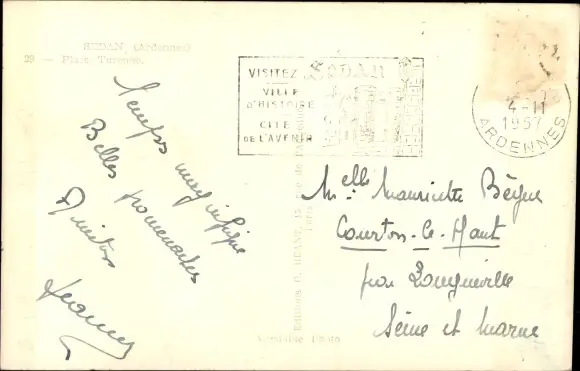 SEDAN (Ardennes)
29 — Place Turenne.
VISITEZ SEDAN
VILLE
D'HISTOIRE
CITÉ
DE L'AVENIR
4-11
1957
ARDENNES
Temps magnifique
Belles promenades
Amitiés
Jeanne
Melle Mauricette Bègue
Courton-le-Haut
par
Seine et Marne
Editions
Véritable Photo